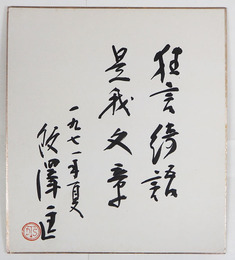 狂言綺語
是我文章
一九七一年夏
飯澤匡